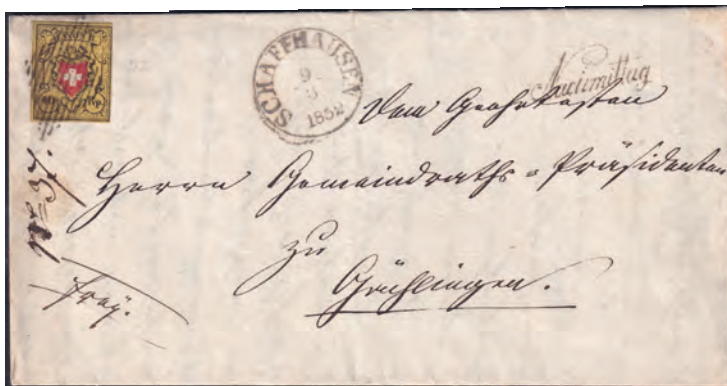 SCHAFFHAUSEN
9
1852
Nachmittag
Dem Geehrtesten
Herrn Gemeindraths = Präsidenten
zu
Gächlingen.
No 37.
Frey.